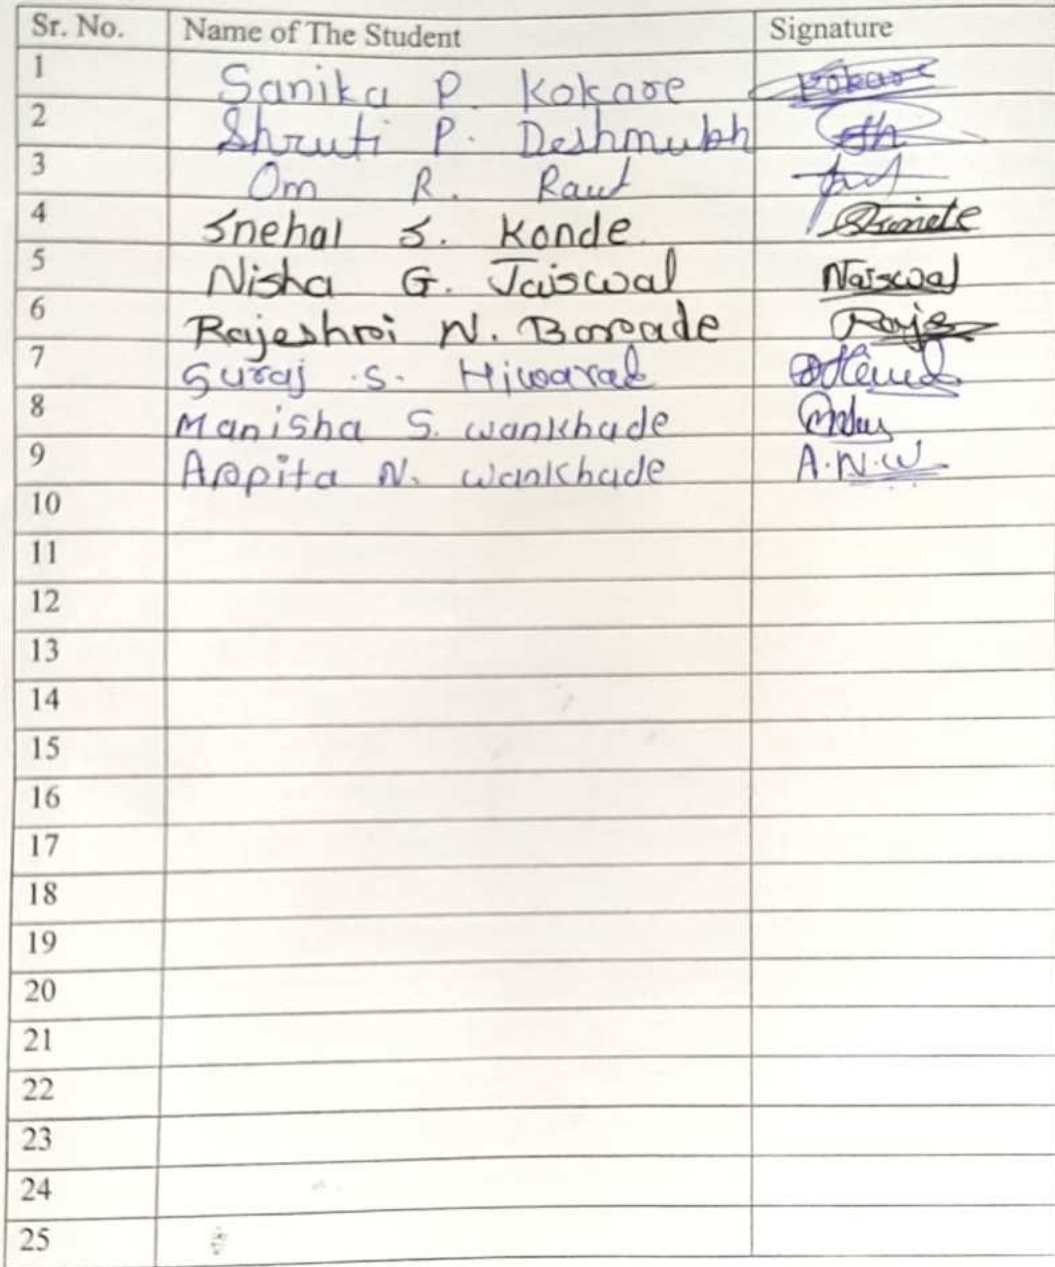 Sr. No. Name of The Student Signature
1 Sanika P. Kokare Kokare
2 Shruti P. Deshmukh
3 Om R. Raut
4 Snehal S. Konde
5 Nisha G. Jaiswal Naiswal
6 Rajeshri N. Borade
7 Suraj S. Hiwarale
8 Manisha S. wankhade
9 Arpita N. wankhade A.N.W
10
11
12
13
14
15
16
17
18
19
20
21
22
23
24
25